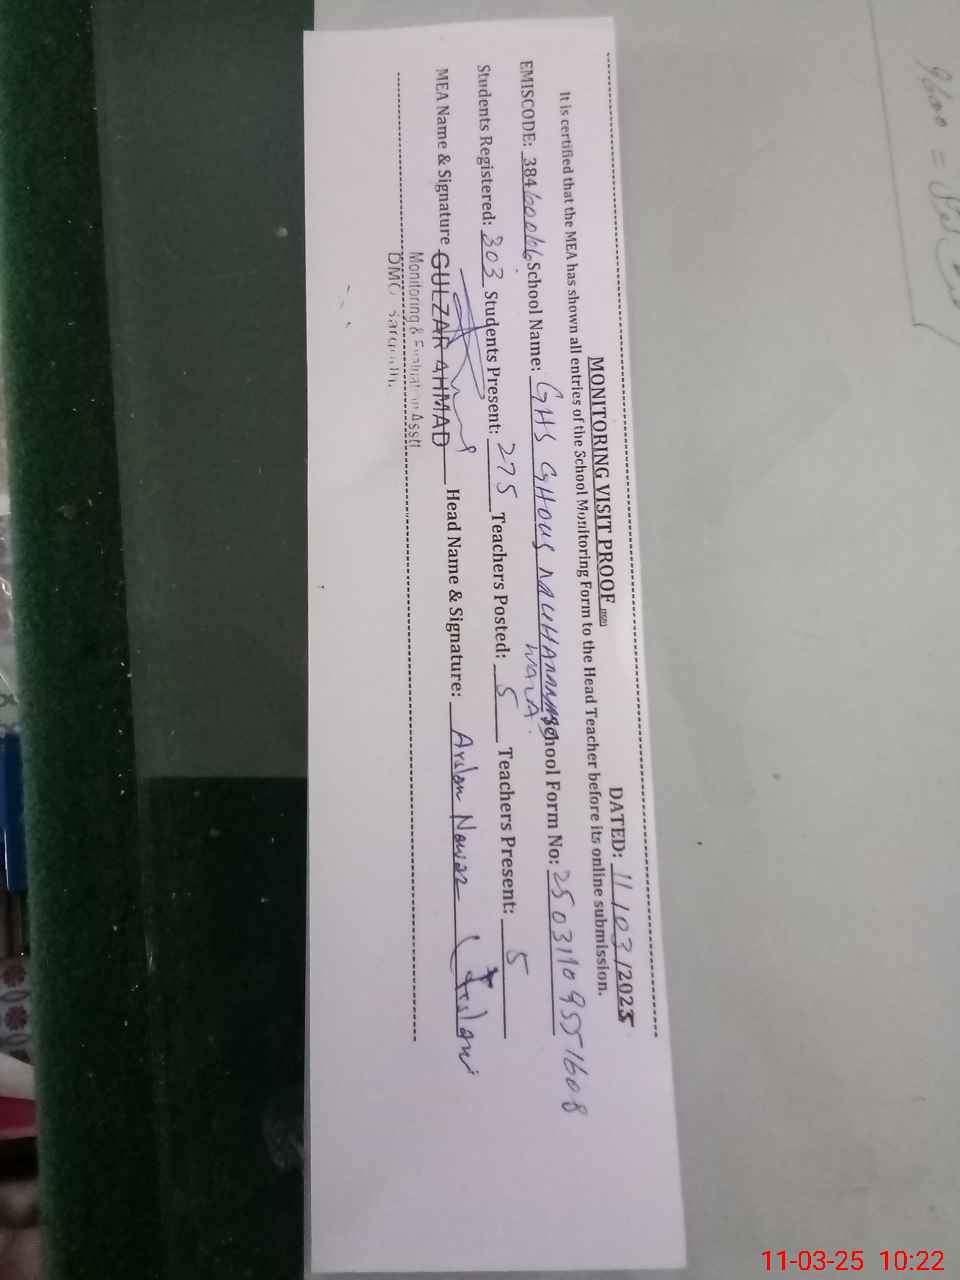 MONITORING VISIT PROOF
DATED: 11/03/2025
It is certified that the MEA has shown all entries of the School Monitoring Form to the Head Teacher before its online submission.
EMISCODE: 384 School Name: GHS GHOUS School Form No: 25031109551608
WALA.
Students Registered: 303 Students Present: 275 Teachers Posted: 5 Teachers Present: 5
MEA Name & Signature GULZAR AHMAD Head Name & Signature: Arslan Nawaz
Monitoring & Asstt
DMO
9600 =
11-03-25 10:22